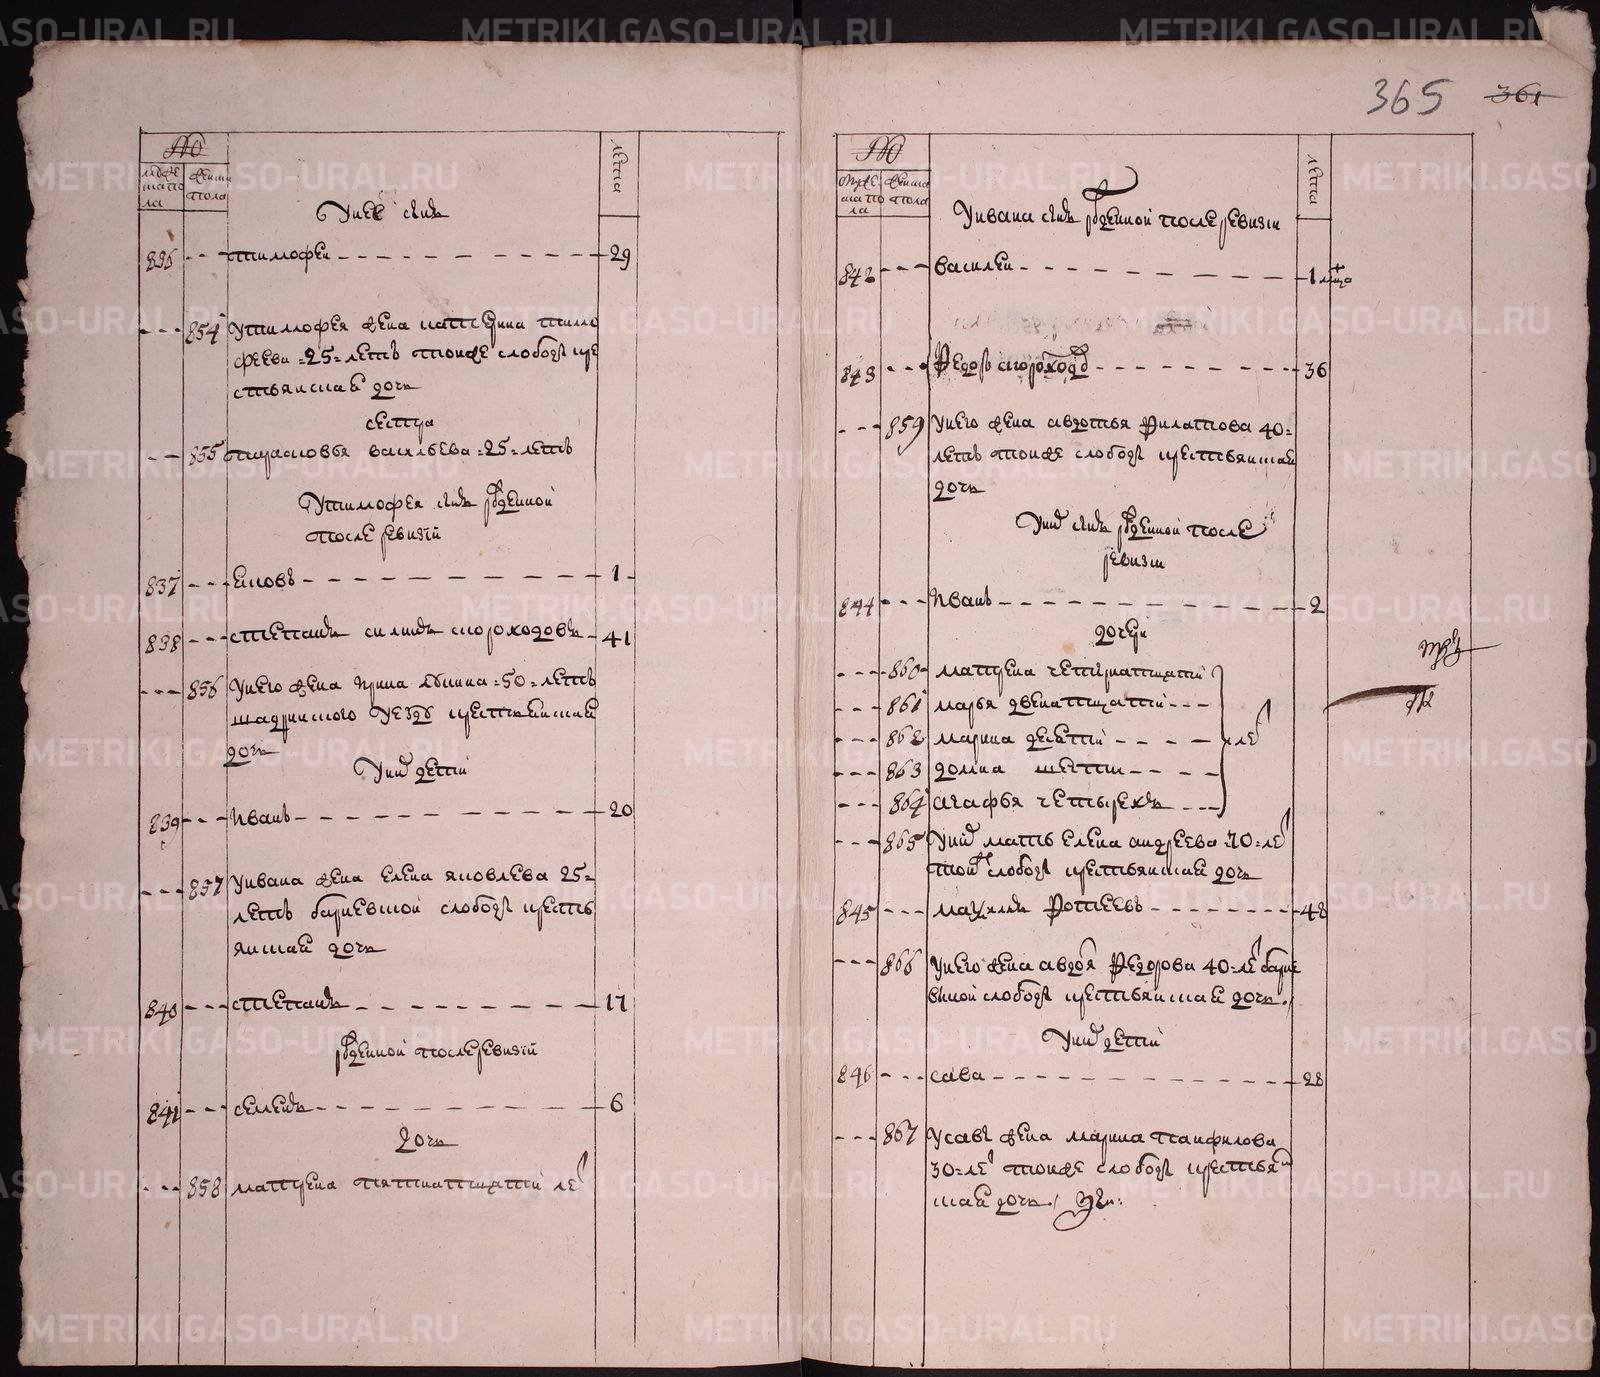 365 361
№
мужеска пола
женска пола
лета
У нее сынъ
836 тимофеи 29
854 У тимофея жена катерина тимо
феева 25 летъ тоижъ слободы кре
стьянская дочь
сестра
855 прасковья васильева 25 летъ
У тимофея сынъ рожденной
после ревизїи
837 Иаковъ 1
838 степанъ силинъ скороходовъ 41
856 У него жена ирина 50 летъ
шадринского уезду крестьянская
дочь
У них дети
839 Иванъ 20
857 У ивана жена Елена яковлева 25
летъ барневской слободы кресть
янская дочь
840 степанъ 17
рожденной после ревизїи
841 семенъ 6
дочь
858 матрена пятнатцати лет
№
мужеска пола
женска пола
лета
У ивана сынъ рожденной после ревизїи
842 василеи 1 месяца
843 Федоръ скороходов 36
859 У него жена авдотья филатова 40
летъ тоиже слободы крестьянская
дочь
У них сынъ рожденной после
ревизїи
844 Иванъ 2
дочери
860 матрена четырнатцати
861 марья двенатцати
862 марина десяти
863 домна шести
864 агафья четырехъ
лет
865 У них мать елена андреева 70 лет
тоиж слободы крестьянская дочь
845 Фотеевъ 48
866 У него жена авдотья Федорова 40 лет барне
вской слободы крестьянская дочь
У них дети
846 сава 28
867 У савы жена марина панфилова
30 лет тоиже слободы крестьян
ская дочь
METRIKI.GASO-URAL.RU